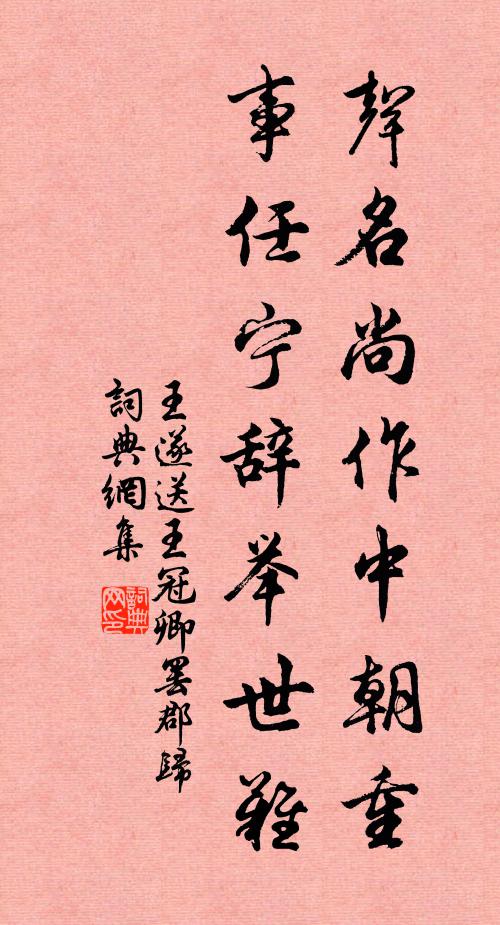 聲名尚作中朝重
事任宁辞举世難
王遂送王冠卿罢郡歸
詞典網集
詞典网印